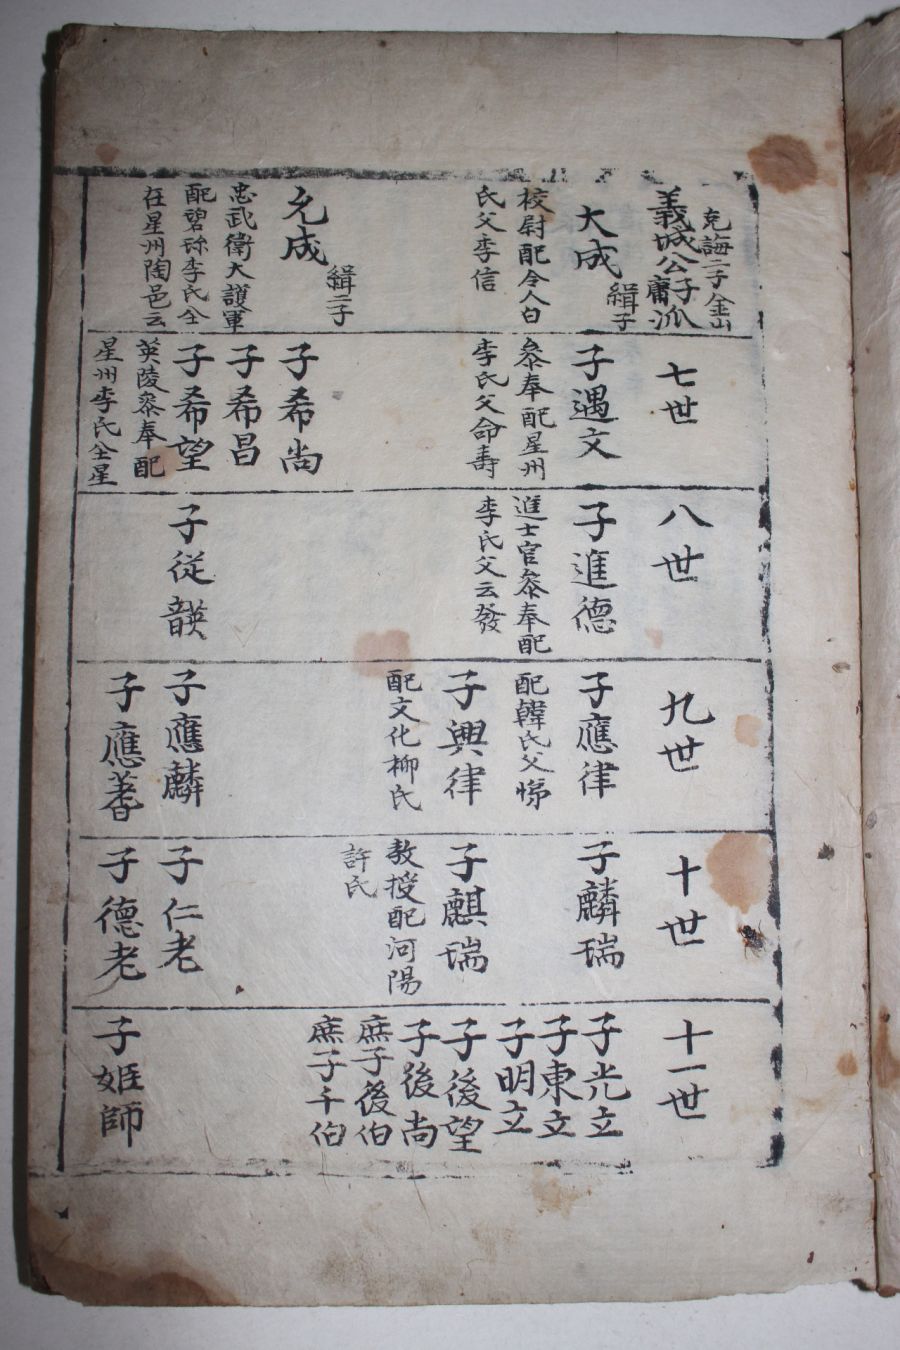 克誨二子金山
義城公子庸派
大成
緝子
校尉配令人白
氏父李信
允成
緝二子
忠武衛大護軍
配碧珍李氏仝
在星州陶邑云
七世
子遇文
叅奉配星州
李氏父命壽
子希尚
子希昌
子希望
英陵叅奉配
星州李氏仝星
八世
子進德
進士官叅奉配
李氏父云發
子従韺
九世
子應律
配韓氏父悌
子興律
配文化柳氏
子應麟
子應蓍
十世
子麟瑞
子麒瑞
教授配河陽
許氏
子仁老
子德老
十一世
子光立
子東立
子明立
子後望
子後尚
庶子後伯
庶子千伯
子姬師